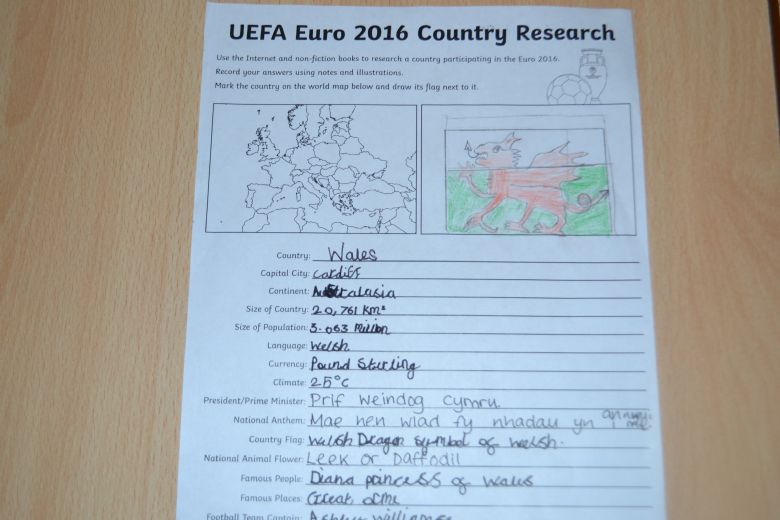 UEFA Euro 2016 Country Research
Use the Internet and non-fiction books to research a country participating in the Euro 2016.
Record your answers using notes and illustrations.
Mark the country on the world map below and draw its flag next to it.
Country: Wales
Capital City: Cardiff
Continent: Australasia
Size of Country: 20,761 Km²
Size of Population: 3.063 Million
Language: Welsh
Currency: Pound Sterling
Climate: 25°C
President/Prime Minister: Prif Weindog Cymru.
National Anthem: Mae hen wlad fy nhadau yn annwyl i mi
Country Flag: Welsh Dragon symbol of welsh.
National Animal Flower: Leek or Daffodil
Famous People: Diana princess of wales
Famous Places: Great orme
Football Team Captain: Ashley williams